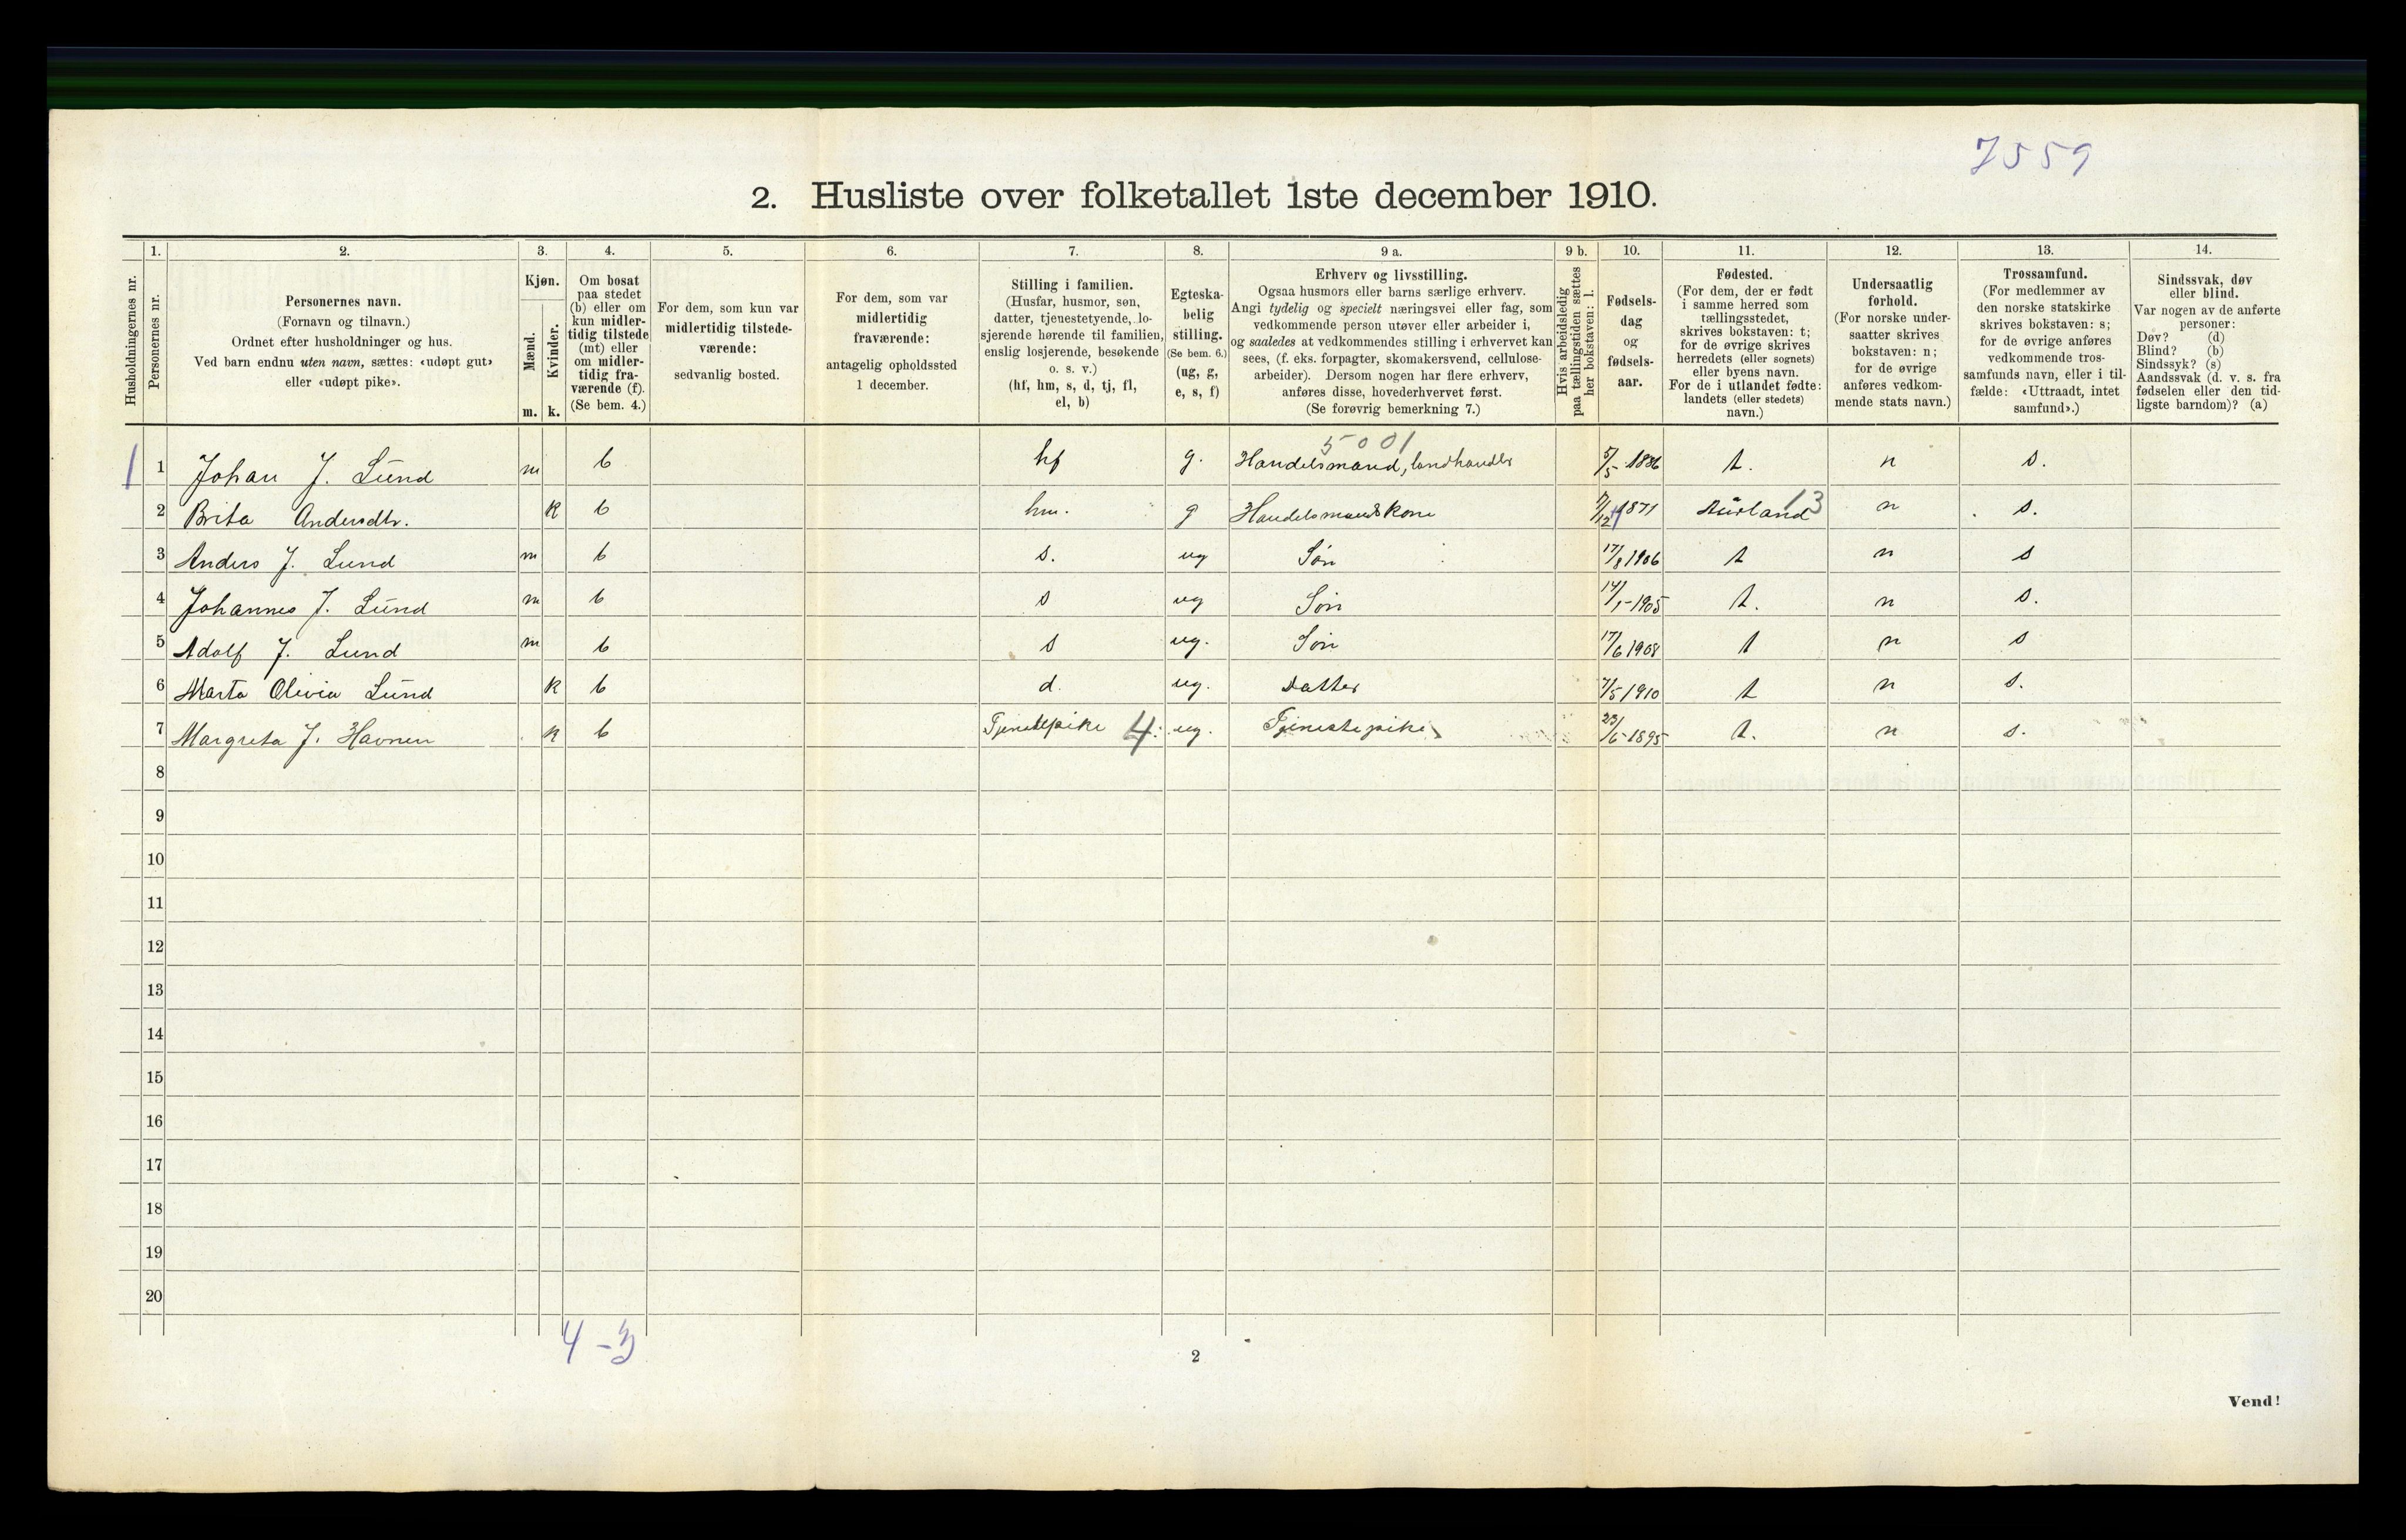 7559
2. Husliste over folketallet 1ste december 1910.
Husholdningernes nr.
1.
Personernes nr.
2.
Personernes navn.
(Fornavn og tilnavn.)
Ordnet efter husholdninger og hus.
Ved barn endnu uten navn, sættes: «udøpt gut»
eller «udøpt pike».
3.
Kjøn.
Mænd.
Kvinder.
m. k.
4.
Om bosat
paa stedet
(b) eller om
kun midler-
tidig tilstede
(mt) eller
om midler-
tidig fra-
værende (f).
(Se bem. 4.)
5.
For dem, som kun var
midlertidig tilstede-
værende:
sedvanlig bosted.
6.
For dem, som var
midlertidig
fraværende:
antagelig opholdssted
1 december.
7.
Stilling i familien.
(Husfar, husmor, søn,
datter, tjenestetyende, lo-
sjerende hørende til familien,
enslig losjerende, besøkende
o. s. v.)
(hf, hm, s, d, tj, fl,
el, b)
8.
Egteska-
belig
stilling.
(Se bem. 6.)
(ug, g,
e, s, f)
9 a.
Erhverv og livsstilling.
Ogsaa husmors eller barns særlige erhverv.
Angi tydelig og specielt næringsvei eller fag, som
vedkommende person utøver eller arbeider i,
og saaledes at vedkommendes stilling i erhvervet kan
sees, (f. eks. forpagter, skomakersvend, cellulose-
arbeider). Dersom nogen har flere erhverv,
anføres disse, hovederhvervet først.
(Se forøvrig bemerkning 7.)
9 b.
Hvis arbeidsledig
paa tællingstiden sættes
her bokstaven: l.
10.
Fødsels-
dag
og
fødsels-
aar.
11.
Fødested.
(For dem, der er født
i samme herred som
tællingsstedet,
skrives bokstaven: t;
for de øvrige skrives
herredets (eller sognets)
eller byens navn.
For de i utlandet fødte:
landets (eller stedets)
navn.)
12.
Undersaatlig
forhold.
(For norske under-
saatter skrives
bokstaven: n;
for de øvrige
anføres vedkom-
mende stats navn.)
13.
Trossamfund.
(For medlemmer av
den norske statskirke
skrives bokstaven: s;
for de øvrige anføres
vedkommende tros-
samfunds navn, eller i til-
fælde: «Uttraadt, intet
samfund».)
14.
Sindssvak, døv
eller blind.
Var nogen av de anførte
personer:
Døv? (d)
Blind? (b)
Sindssyk? (s)
Aandssvak (d. v. s. fra
fødselen eller den tid-
ligste barndom)? (a)
5001
1 1 Johan J. Lund m b hf g. Handelsmand, landhandler 5/5 1886 t. n s.
2 Brita Andersdtr. k b hm. g Handelsmandskone 1871 Aurland 13 n s.
3 Anders J. Lund m b s. ug Søn 17/8 1906 t n s
4 Johannes J. Lund m b s ug Søn 14/1-1905 t. n s.
5 Adolf J. Lund m b s ug. Søn 17/6 1908 t n s
6 Marta Olivia Lund k b d. ug. Datter 7/5 1910 t n s.
7 Margreta J. Havnen k b Tjenestepike 4 ug. Tjenestepike 23/6-1895 t. n s.
8
9
10
11
12
13
14
15
16
17
18
19
20
4-3
2
Vend!